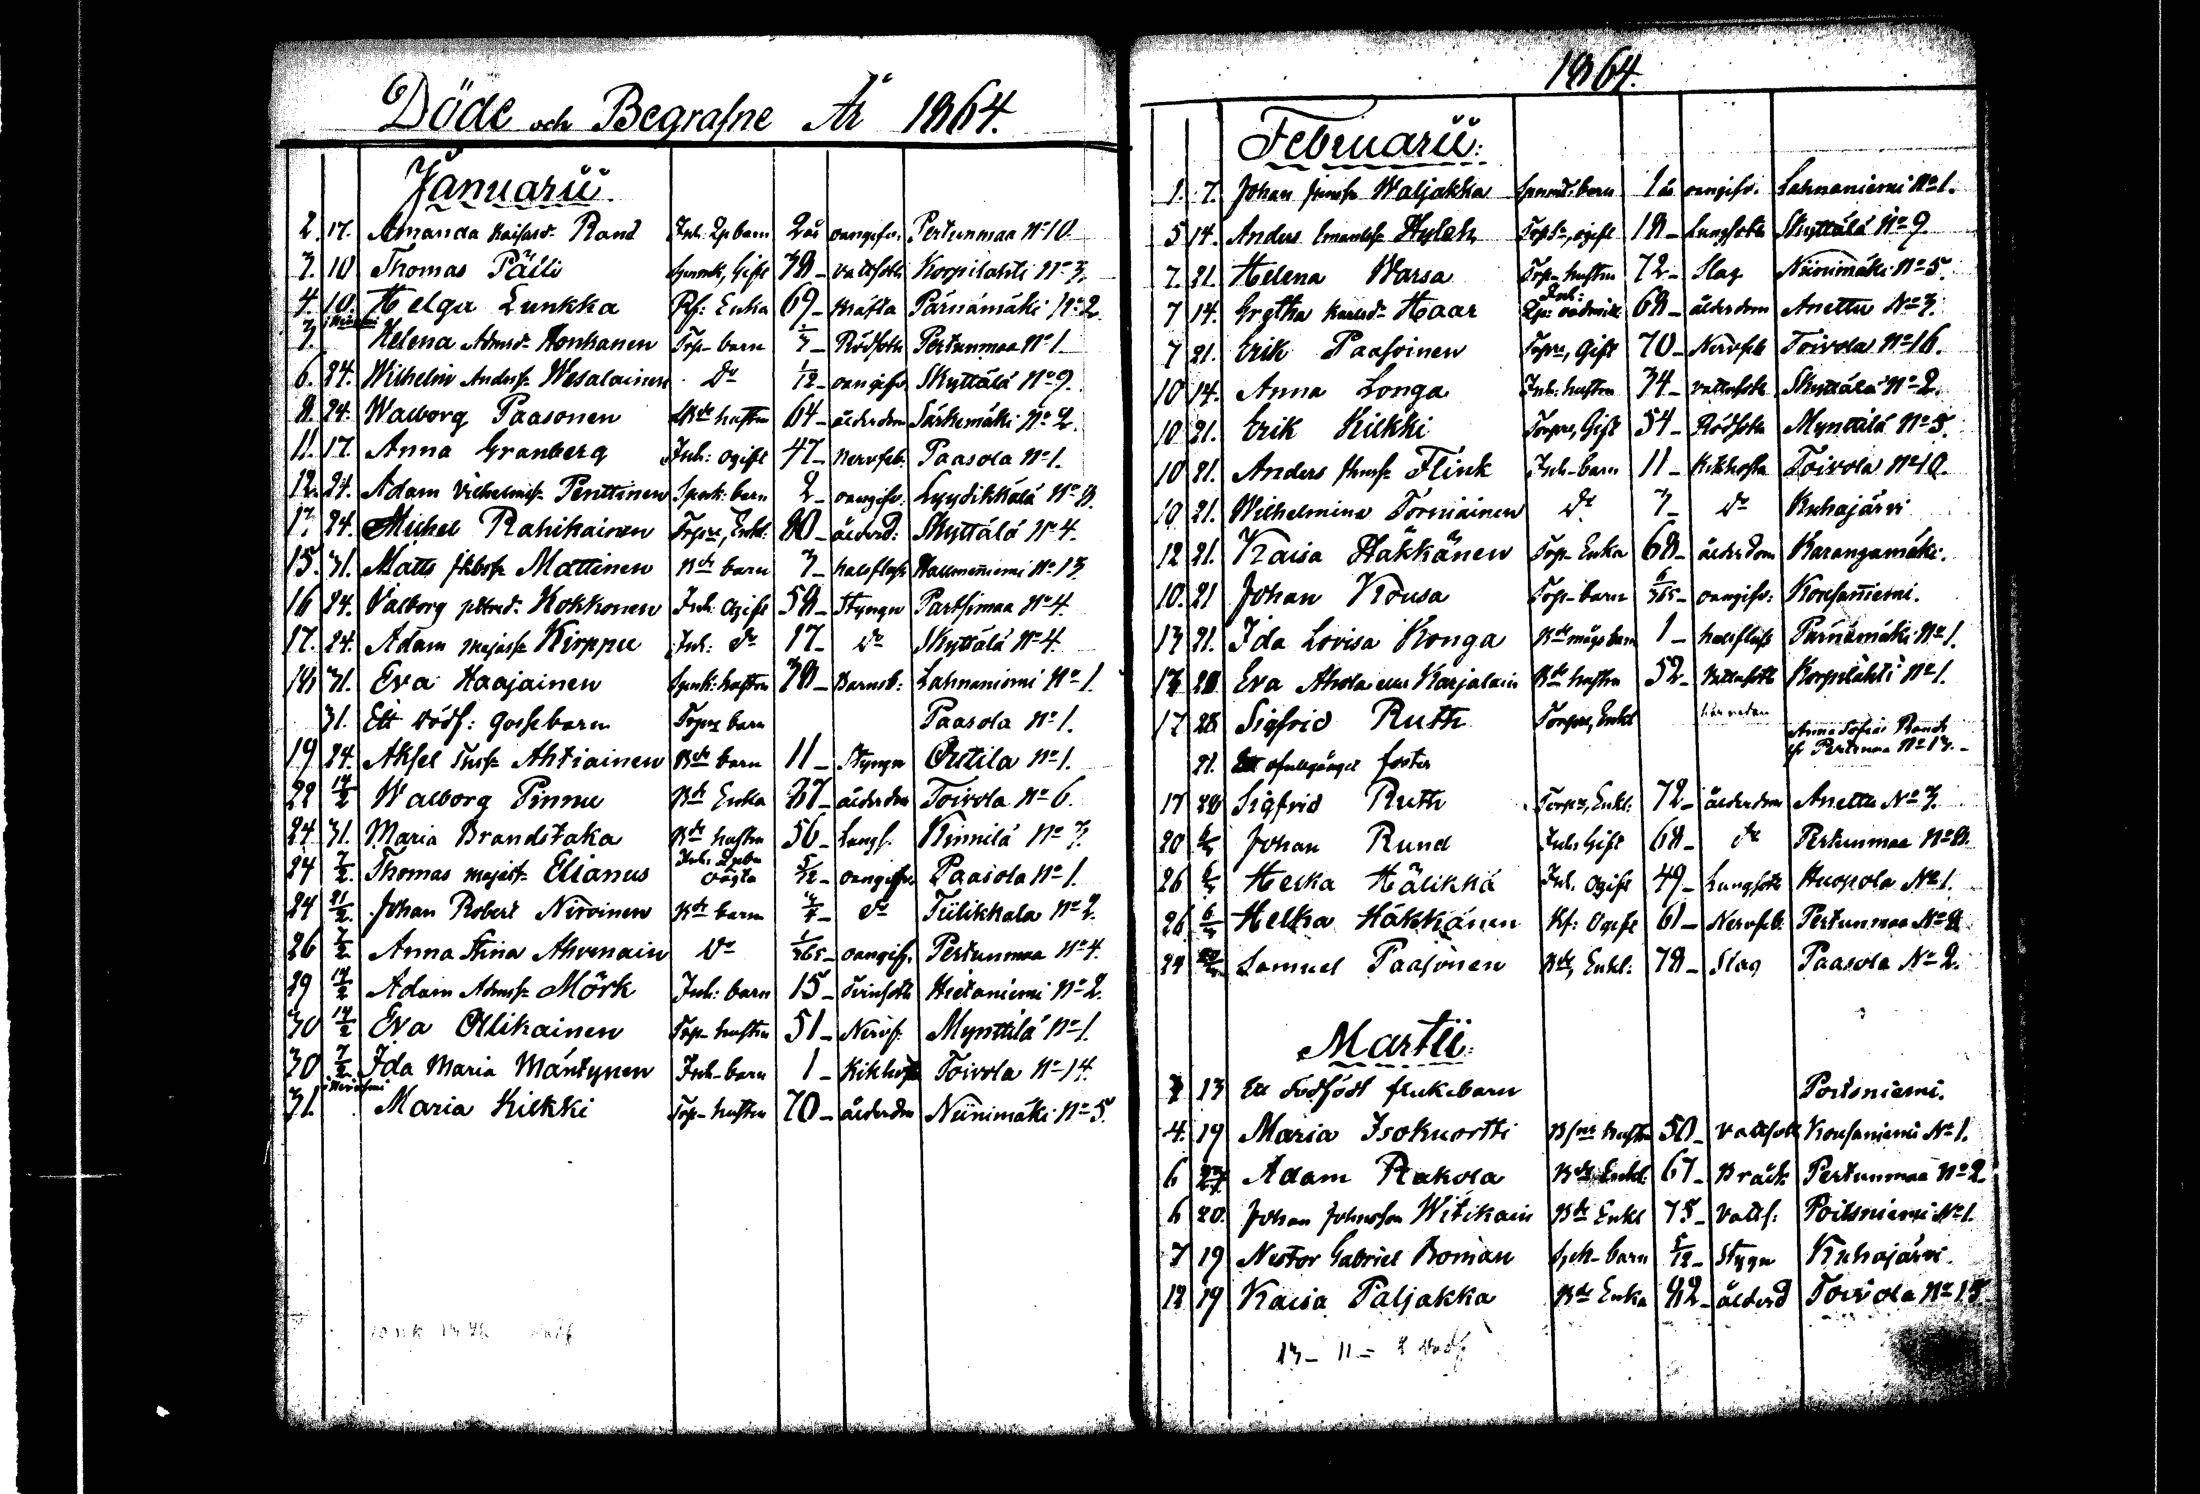 Döde och Begrafne År 1864.
Januarii
2. 17. Amanda Kaisasd. Rand Inh. Lp barn 2 år oangifv. Pertunmaa No 10
3. 10 Thomas Pälli Spnmk, Gift 38 – vattsot Korpilahti No 3.
4. 10. Helga Lunkka Rf: Enka 69 – Pärnämäki No 2.
3. Helena Admsd. Honkanen Torp– barn Rödsot Pertunmaa No 1.
6. 24. Wilhelm Andsf. Wesalainen Do 1/12 – oangifv. Skyttälä No 9.
8. 24. Walborg Paasonen hustru 64 – ålderdom Särkemäki No 2.
11. 17. Anna Granberg Inh: ogift 47 – Nervfeb. Paasola No 1.
12. 24. Adam Vilhelmsf. Penttinen Spnk: barn 2 – oangifv. Lyydikkälä No 8.
13. 24. Michel Rahikainen Torpre, Enkl: 80 – ålderd: Skyttälä No 4.
15. 31. Matts Jkbsf. Mattinen Bde barn 3 – halsfluss Hallmenniemi No 13
16 24. Valborg Kokkonen Inh: Ogift 58 – Styngn Partsimaa No 4.
17. 24. Adam Majasf. Kirppu Inh: do 17 – Do Skyttälä No 4.
18. 31. Eva Haajainen Spnk: hustru 38 – Barnsb: Lahnaniemi No 1.
31. Ett Dödf: gossebarn Torpre barn Paasola No 1.
19 24. Aksel Ahtiainen Bde barn 11 – Styngn Orttila No 1.
22 14/2 Walborg Pinnu Bde Enka 87 – ålderdom Toivola No 6.
24 31. Maria Brandstaka Bde hustru 56 – Lungs. Kinnilä No 3.
24 7/2. Thomas Majast. Elianus 5/12 – oangifv. Paasola No 1.
24 21/2. Johan Robert Nirvinen Bde barn do Tiilikkala No 2.
26 7/2. Anna Stina Ahvenain Do 1/365 – oangifv. Pertunmaa No 4.
29 14/2 Adam Admsf. Mörk Inh: barn 15 – Hietaniemi No 2.
30 14/2 Eva Ollikainen Torp– hustru 51 – Nervf. Mynttilä No 1.
30 7/2. Ida Maria Mäntynen Inh– barn 1 – Kikhosta Toivola No 14.
31. Maria Kilkki Torp– hustru 70 – ålderdom Niinimäki No 5.
1864.
Februarii:
1. 7. Johan Waljakka barn 1 år oangifv. Lahnaniemi No 1.
5 14. Anders Emanlsf. Hyleh ogift 18 – Lungsot Skyttälä No 9
7. 21. Helena Warsa Torp– hustru 72 – Slag Niinimäki No 5.
7 14. Gretha Karlsd. Haar Inh: 68 – ålderdom Anettu No 3.
7 21. Erik Paasoinen Torpre, Gift 70 – Nervfeb Toivola No 16.
10 14. Anna Longa Inh: hustru 34 – vattusot Skyttälä No 2.
10 21. Erik Kilkki Torpre, Gift 54 – Rödsot Mynttilä No 5.
10 21. Anders Flink Inh– barn 11 – Kikhosta Toivola No 10.
10 21. Wilhelmina Törniäinen Do 3 – Do Kuhajärvi
12 21. Kaisa Häkkänen Torp– Enka 68 – ålderdom Karangamäki.
10. 21 Johan Kousa Torp– barn 6/365 – oangifv: Konsanniemi.
13 21. Ida Lovisa Konga Bde mågs barn 1 – halsfluss Pärnämäki No 1.
13 28. Eva Ahola eller Karjalain Bde hustru 52 – Korpilahti No 1.
17 28 Sigfrid Ruth Torpre, Enkl här nedan
21. Ett ofullgånget foster Anna Sofia Rand fr Pertunmaa No 13. –
17 28 Sigfrid Ruth Torpre, Enkl: 72 – ålderdom Anettu No 3.
20 6/3 Johan Rund Inh. Gift 68 – do Pertunmaa No 8.
26 6/3 Helka Hälikkä Inh. Ogift 49 – Lungsot Huopola No 1.
26. 6/3 Helka Häkkänen Rf: Ogift 61 – Nervfeb. Pertunmaa No 2
29 Samuel Paajonen Bde, Enkl: 78 – Slag Paasola No 2.
Martii:
3 13 Ett dödfödt flickebarn Portsniemi.
4. 19 Maria Isokuortti hustru 50 – vattsot Konsaniemi No 1.
6 27 Adam Rakola Bde Enkl: 67 – Bråck Pertunmaa No 2.
6 20. Johan Johnsson Witikain Bde Enkl 75 – Vatts: Poitsniemi No 1.
7 19 Nestor Gabriel Roman barn 5/12 – Stygn Kuhajärvi.
12 19 Kaisa Paljakka Bde Enka 82 – ålderd Toivola No 15
13 – 11 =